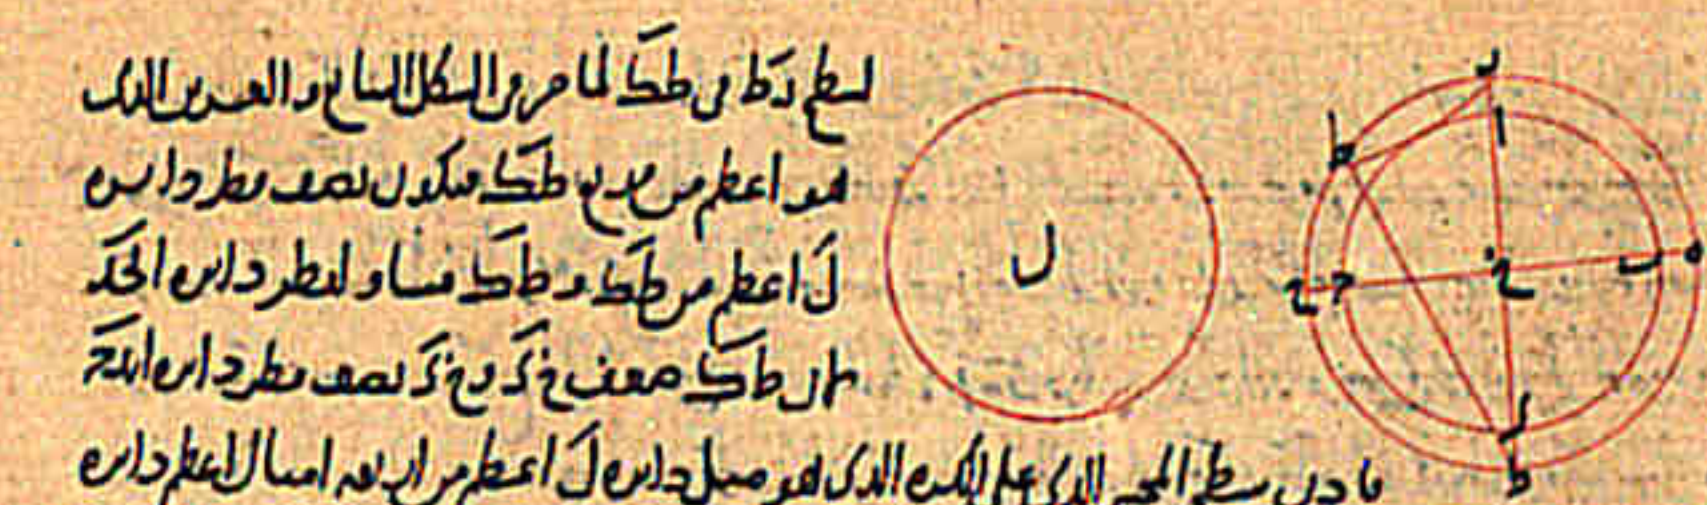 لسطح رط في طك لما مر في الشكل السابع والعشرين الذي
هو اعظم من مربع طك فيكون نصف قطر دايرة
ل اعظم من طك و طك مساو لقطر دايرة ابجد
لان طك ضعف
نصف قطر دايرة ابجد
فاذن سطح المجسم الذي على الكرة الذي هو مثل دايرة ل اعظم من اربعة امثال اعظم دايرة
ل
ا
ط